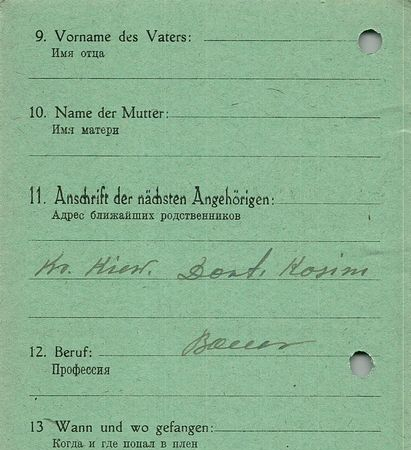 9. Vorname des Vaters:
Имя отца
10. Name der Mutter:
Имя матери
11. Anschrift der nächsten Angehörigen:
Адрес ближайших родственников
Kr. Kiew. Dorf. Kosim
12. Beruf: Bauer
Профессия
13 Wann und wo gefangen:
Когда и где попал в плен